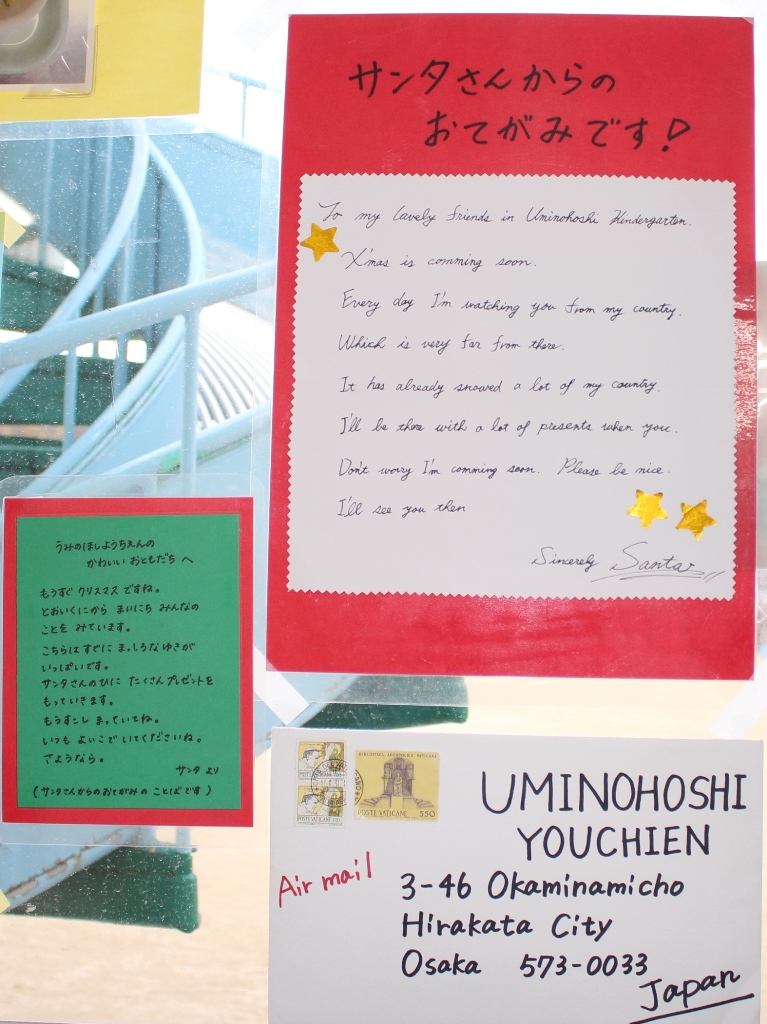 サンタさんからの
おてがみです!
To my lovely friends in Uminohoshi Kindergarten.
X'mas is comming soon.
Every day I'm watching you from my country.
Which is very far from there.
It has already snowed a lot of my country.
I'll be there with a lot of presents when you.
Don't worry I'm comming soon. Please be nice.
I'll see you then
Sincerely Santa
うみのほしようちえんの
かわいい おともだち へ
もうすぐ クリスマス ですね。
とおいくにから まいにち みんなの
ことを みています。
こちらは すでに まっしろな ゆきが
いっぱいです。
サンタさんのひに たくさん プレゼントを
もっていきます。
もうすこし まっていてね。
いつも よいこで いてくださいね。
さようなら。
サンタ より
(サンタさんからのおてがみの ことばです)
BIBLIOTECA APOSTOLICA VATICANA
POSTE VATICANE 550
POSTE VATICANE
UMINOHOSHI
YOUCHIEN
Air mail
3-46 Okaminamicho
Hirakata City
Osaka 573-0033
Japan